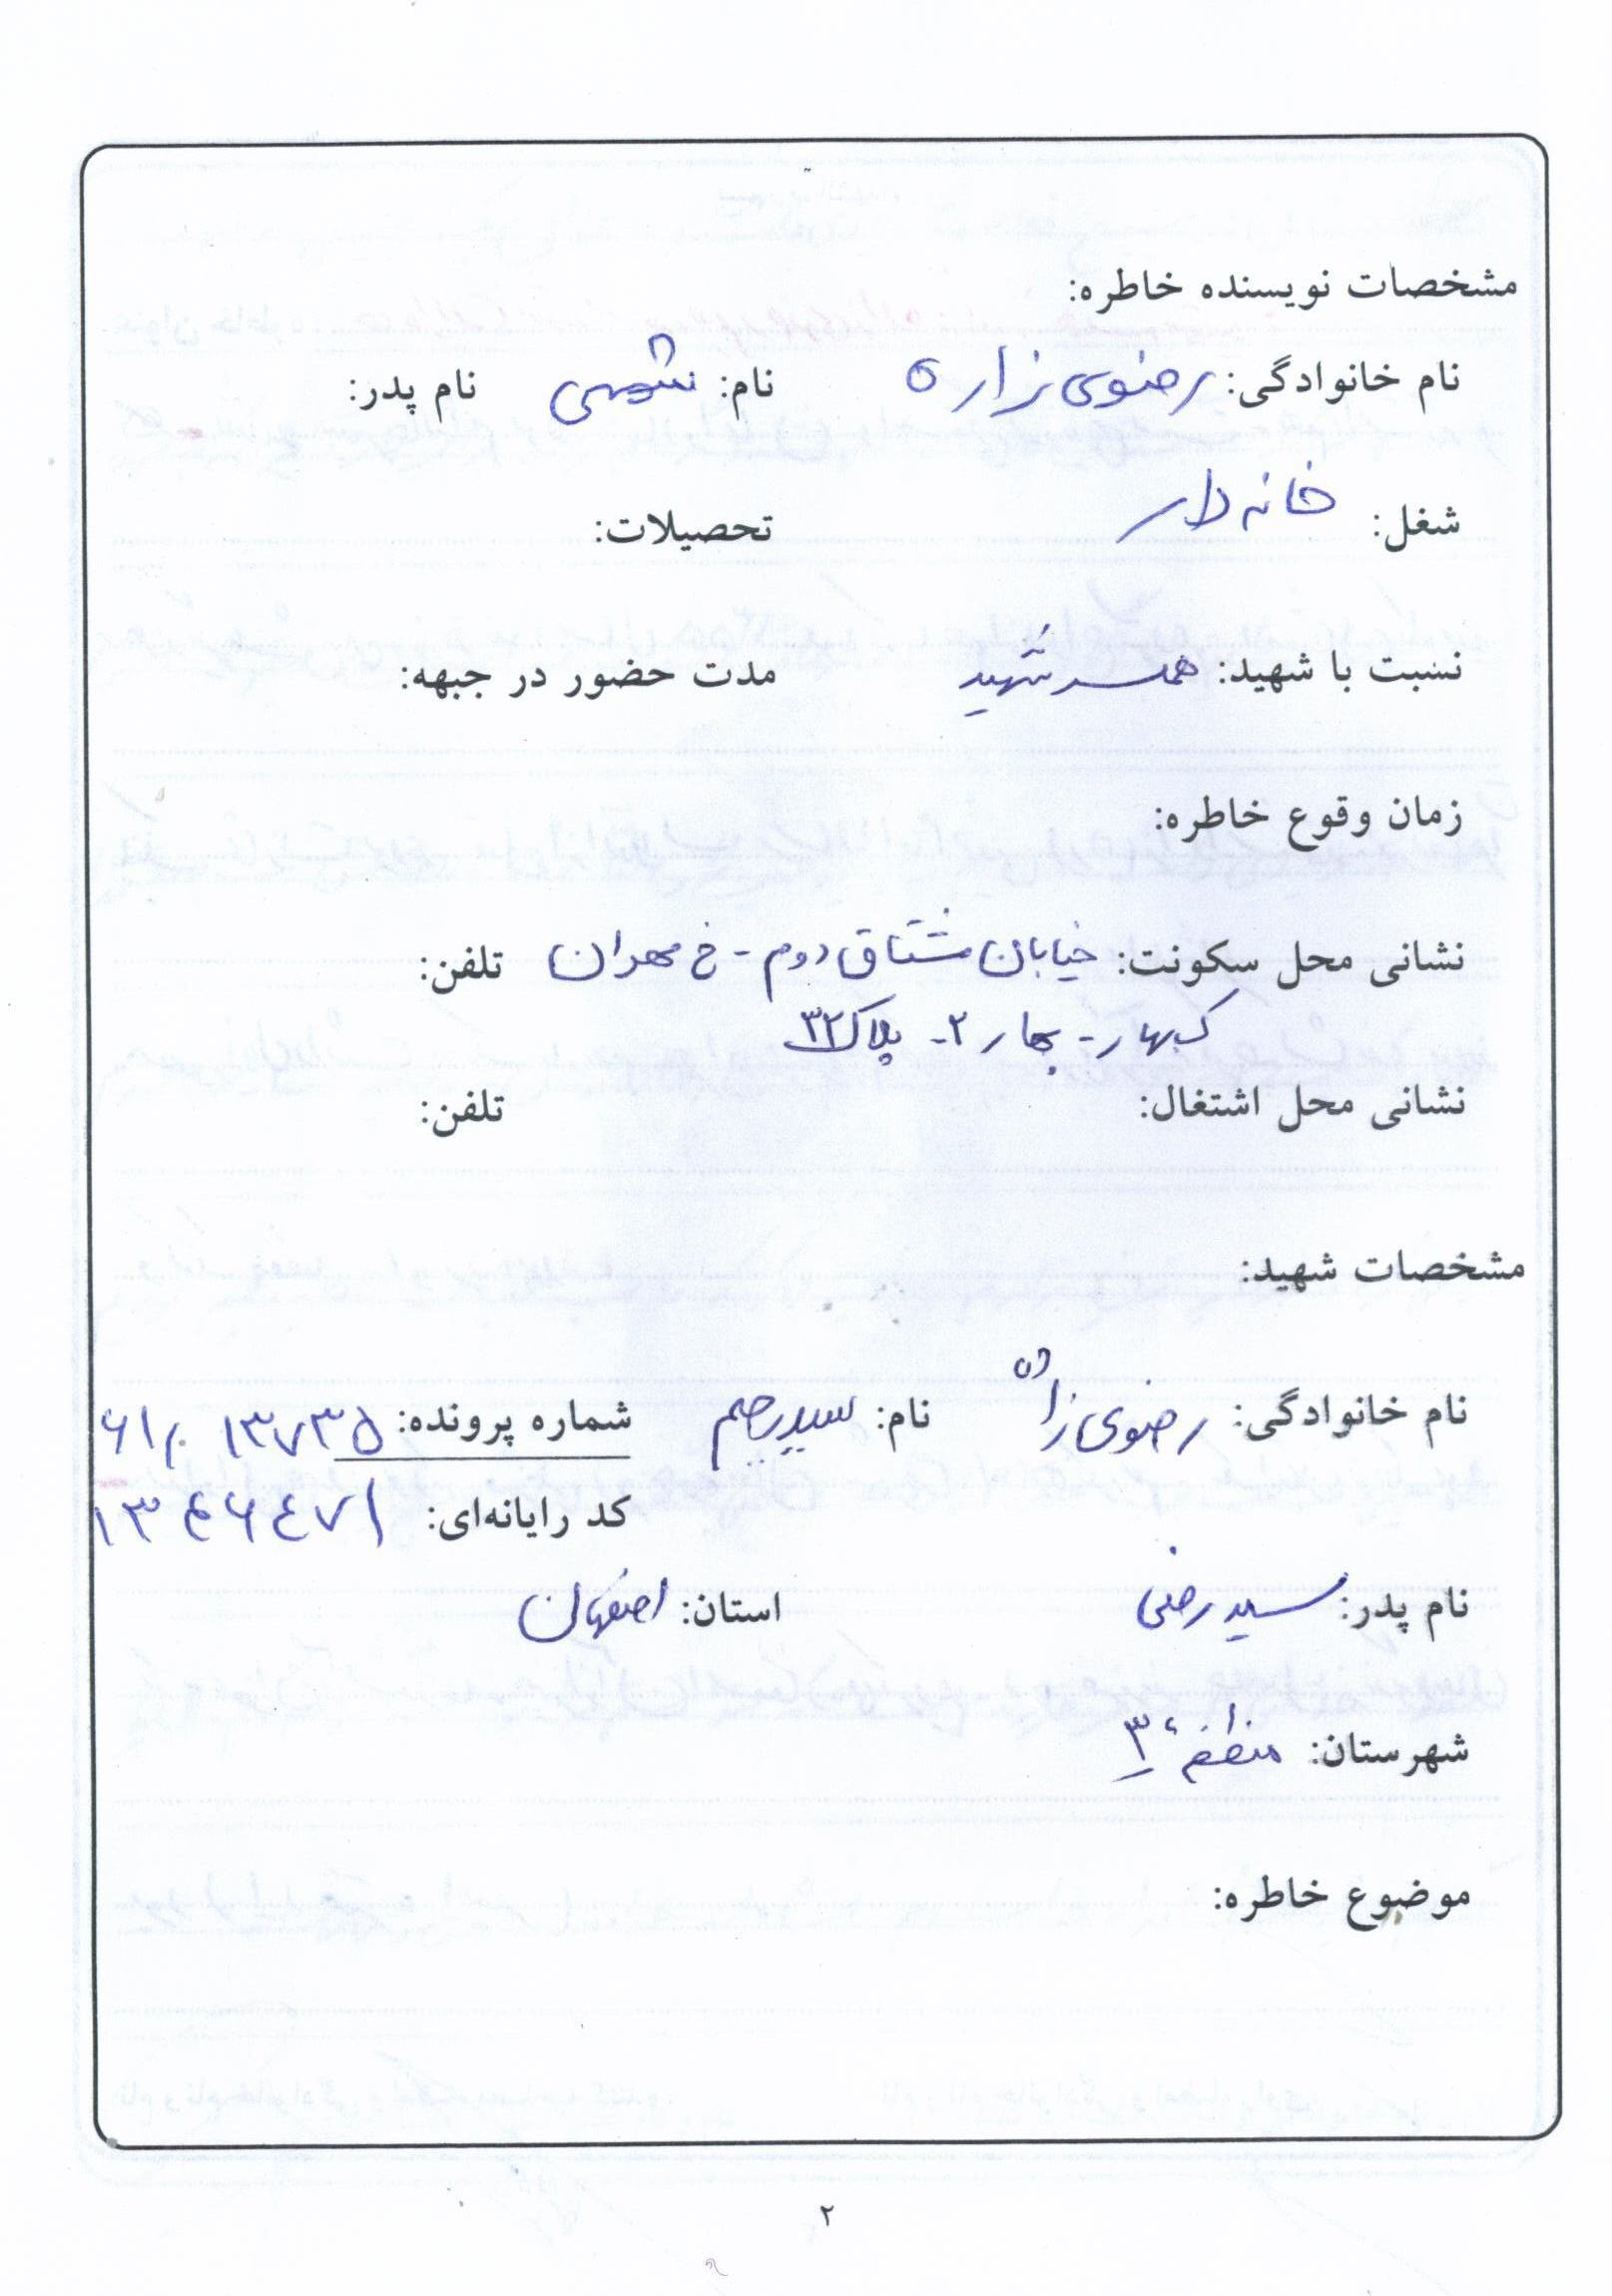 مشخصات نویسنده خاطره:
نام خانوادگی: رضوی زاده نام: نام پدر:
شغل: خانه دار تحصیلات:
نسبت با شهید: همسر شهید مدت حضور در جبهه:
زمان وقوع خاطره:
نشانی محل سکونت: خیابان مشتاق دوم - خ مهران تلفن:
ک بهار - بهار ۲ - پلاک ۳۲
نشانی محل اشتغال: تلفن:
مشخصات شهید:
نام خانوادگی: رضوی زاده نام: سید رحیم شماره پرونده: ۱۳۷۳۵
کد رایانه‌ای:
نام پدر: سید رضی استان: اصفهان
شهرستان: منطقه ۳
موضوع خاطره:
۲